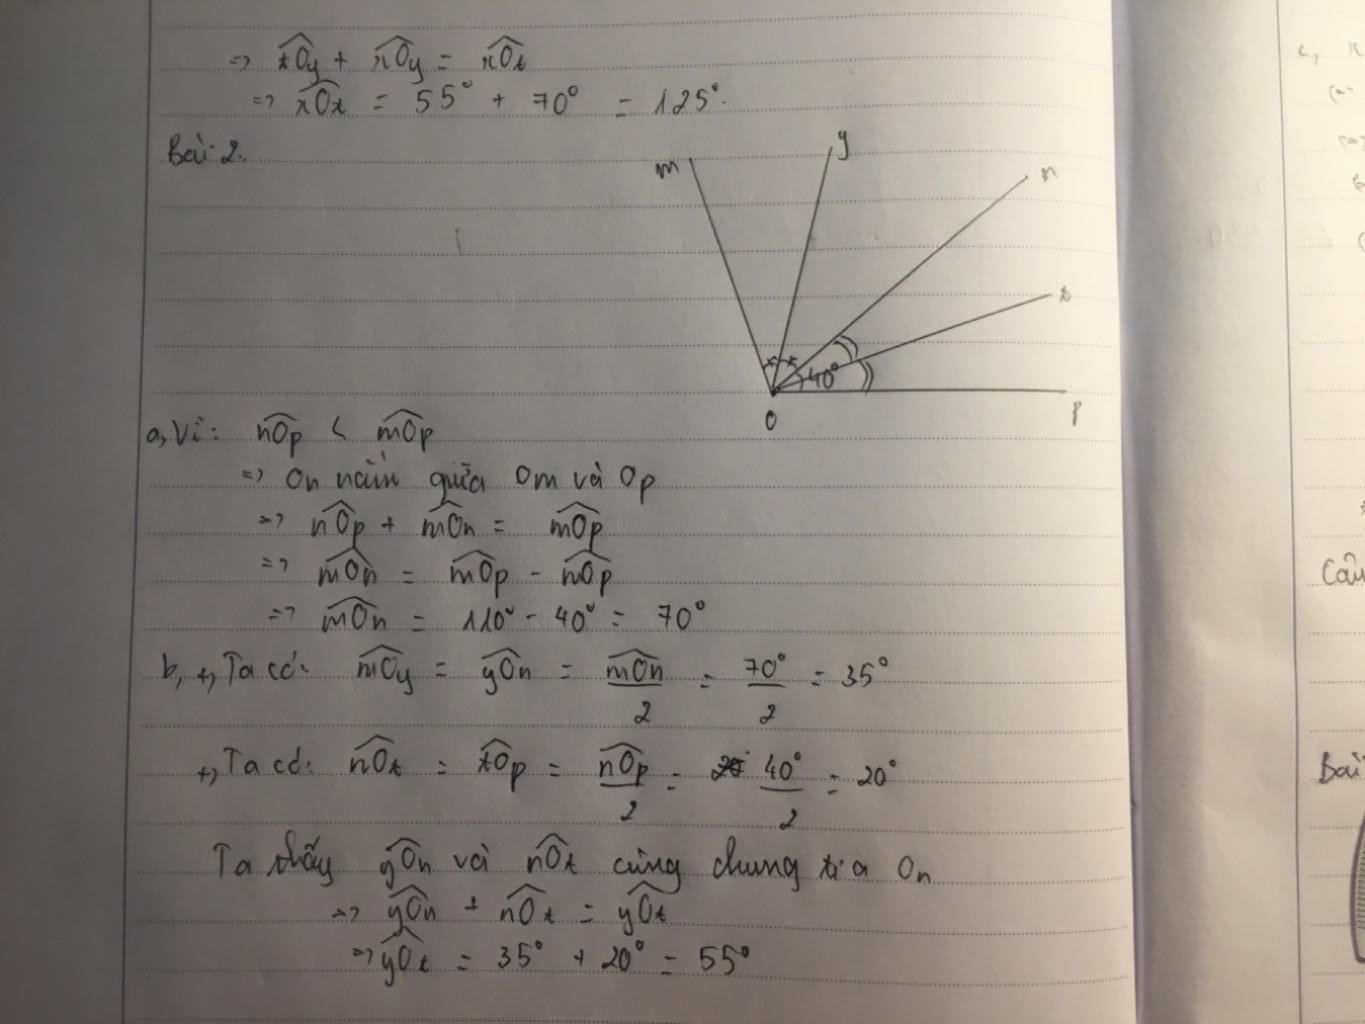 => tOy + xOy = xOt
=> xOt = 55° + 70° = 125°.
Bài 2.
m
y
n
t
40°
O
p
a, Vì: nOp < mOp
=> On nằm giữa Om và Op
=> nOp + mOn = mOp
=> mOn = mOp - nOp
=> mOn = 110° - 40° = 70°
b, +, Ta có: mOy = yOn = mOn/2 = 70°/2 = 35°
+, Ta có: nOt = tOp = nOp/2 = 40°/2 = 20°
Ta thấy yOn và nOt cùng chung tia On
=> yOn + nOt = yOt
=> yOt = 35° + 20° = 55°
c,
Câu
Bài